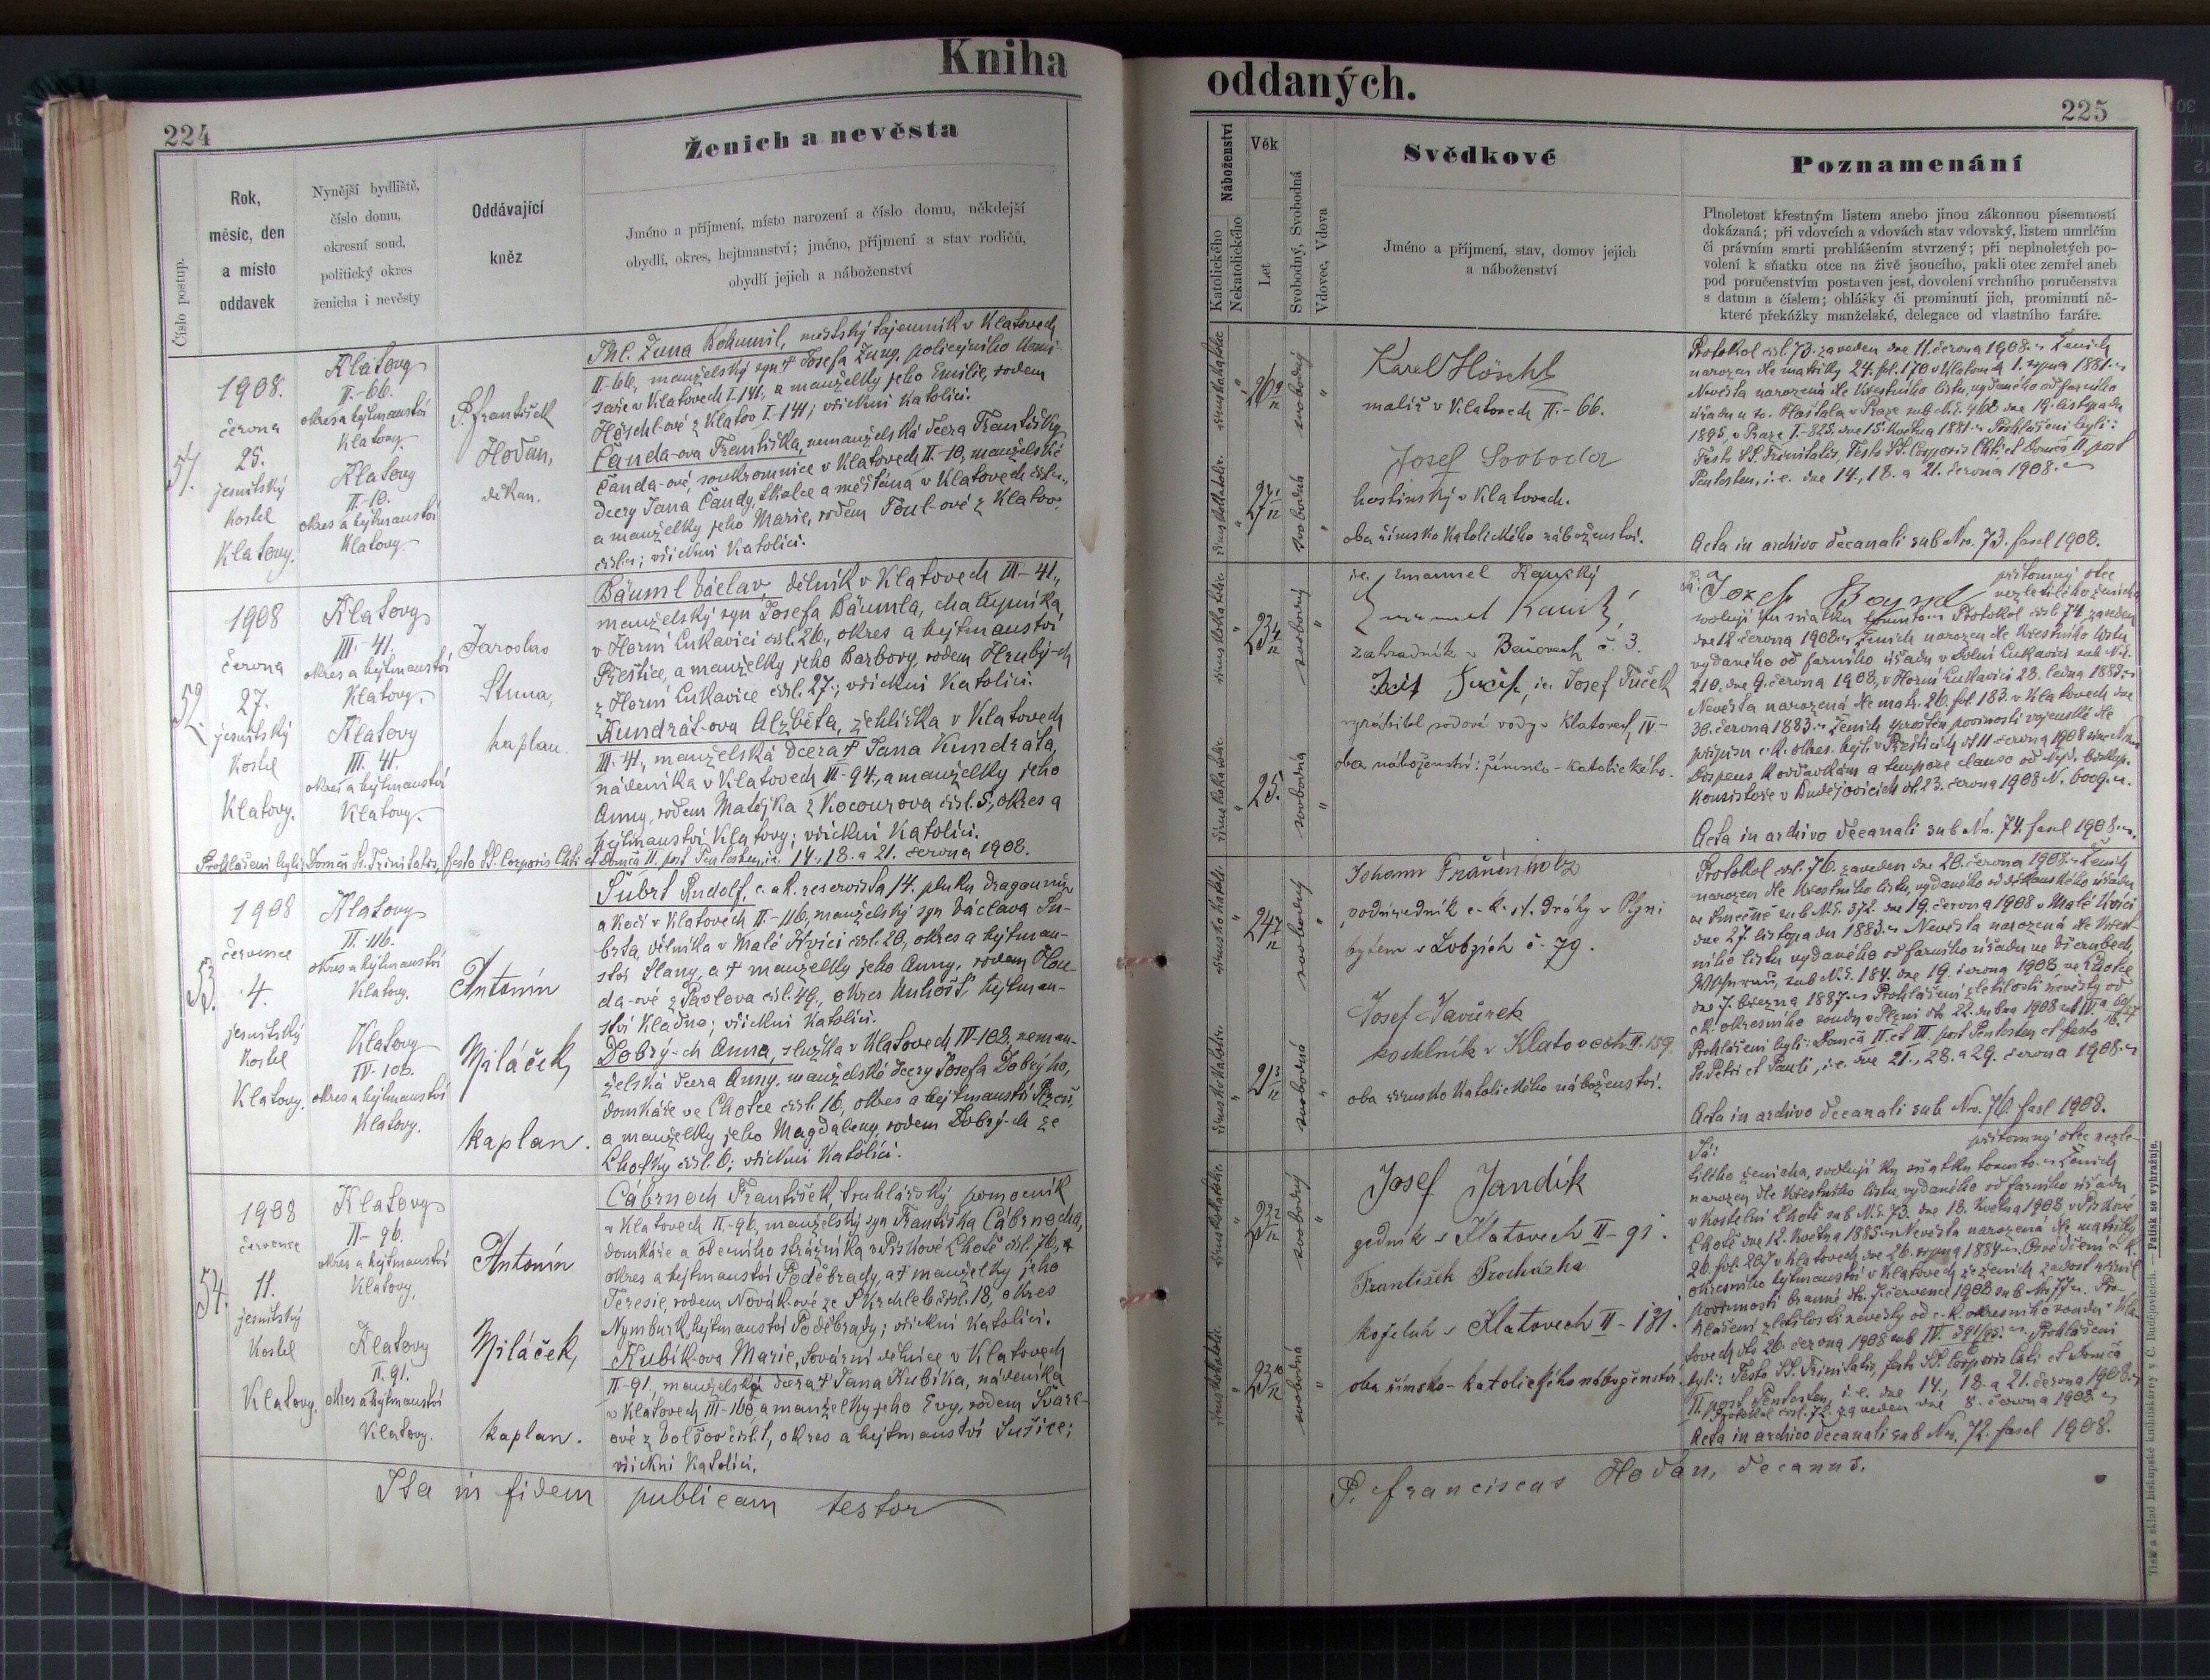 Kniha
224
Ženich a nevěsta
Číslo postup.
Rok,
měsíc, den
a místo
oddavek
Nynější bydliště,
číslo domu,
okresní soud,
politický okres
ženicha i nevěsty
Oddávající
kněz
Jméno a příjmení, místo narození a číslo domu, někdejší
obydlí, okres, hejtmanství; jméno, příjmení a stav rodičů,
obydlí jejich a náboženství
51.
1908.
června
25.
jesuitský
kostel
Klatovy.
Klatovy
II.-66.
okres a hejtmanství
Klatovy.
Klatovy
II.-10.
okres a hejtmanství
Klatovy.
P. František
Hoďan,
děkan.
Bohumil, městský tajemník v Klatovech
II-66, manželský syn † Josefa policejního komi-
saře v Klatovech I.-141, a manželky jeho Emilie, rodem
Höschl-ové z Klatov I.-141; všickni katolíci.
Čanda-ova Františka, nemanželská dcera Františky
Čanda-ové soukromnice v Klatovech II.-10, manželské
dcery Jana Čandy, a měšťana v Klatovech
a manželky jeho Marie, rodem z Klatov
všickni katolíci.
52.
1908
června
27.
jesuitský
kostel
Klatovy.
Klatovy
III.-41.
okres a hejtmanství
Klatovy.
Klatovy
III.-41.
okres a hejtmanství
Klatovy.
Jaroslav
kaplan.
Bäuml Václav, dělník v Klatovech III-41.,
manželský syn Josefa Bäumla, chalupníka
v Horní Lukavici čísl. 26., okres a hejtmanství
Přeštice, a manželky jeho Barbory, rodem Hrubý-ch
z Horní Lukavice čísl. 27.; všickni katolíci.
Kundrát-ova Alžběta, žehlířka v Klatovech
III-41., manželská dcera † Jana Kundráta,
nádeníka v Klatovech III-94., a manželky jeho
Anny, rodem Matějka z Kocourova čísl. 5., okres a
hejtmanství Klatovy; všickni katolíci.
Prohlášeni byli: Domca Ss. Trinitatis, festo SS. Corporis Chti et Domca II. post Pentosten, i.e. 14., 18. a 21. června 1908.
53.
1908
července
4.
jesuitský
kostel
Klatovy.
Klatovy
II.-116.
okres a hejtmanství
Klatovy.
Klatovy
IV.-103.
okres a hejtmanství
Klatovy.
Antonín
Miláček,
kaplan.
Šubrt Rudolf, c. a k. reservista 14. pluku dragounů
a kočí v Klatovech II-116, manželský syn Václava Šu-
brta, dělníka v Malé Kvici čísl. 20, okres a hejtman-
ství Slaný, a † manželky jeho Anny, rodem Hou-
da-ové z Pavlova čísl. 49., okres Unhošť, hejtman-
ství Kladno; všickni katolíci.
Dobrý-ch Anna, služka v Klatovech IV-103, neman-
želská dcera Anny, manželské dcery Josefa Dobrýho,
domkáře ve Chotce čísl. 16, okres a hejtmanství Plzeň,
a manželky jeho Magdaleny, rodem Dobrý-ch ze
čísl. 6; všickni katolíci.
54.
1908
července
11.
jesuitský
kostel
Klatovy.
Klatovy
II-96.
okres a hejtmanství
Klatovy.
Klatovy
II.91.
okres a hejtmanství
Klatovy.
Antonín
Miláček,
kaplan.
Cábrnoch František, truhlářský pomocník
v Klatovech II-96. manželský syn Františka Cábrnocha,
domkáře a obecního strážníka v Pískové Lhotě čísl. 76.,
okres a hejtmanství Poděbrady, a † manželky jeho
Teresie, rodem Novák-ové ze čísl. 18, okres
Nymburk, hejtmanství Poděbrady; všickni katolíci.
Kubík-ova Marie, tovární dělnice v Klatovech
II-91., manželská dcera † Jana Kubíka, nádeníka
v Klatovech III-160, a manželky jeho Evy, rodem
ové z čísl. 1, okres a hejtmanství Sušice;
všickni katolíci.
Ita in fidem publicam testor
oddaných.
225
Náboženství
Katolického
Nekatolického
Věk
Let
Svobodný, Svobodná
Vdovec, Vdova
Svědkové
Jméno a příjmení, stav, domov jejich
a náboženství
Poznamenání
Plnoletost křestným listem anebo jinou zákonnou písemností
dokázaná; při vdovcích a vdovách stav vdovský, listem umrlčím
či právním smrti prohlášením stvrzený; při neplnoletých po-
volení k sňatku otce na živě jsoucího, pakli otec zemřel aneb
pod poručenstvím postaven jest, dovolení vrchního poručenstva
s datum a číslem; ohlášky či prominutí jich, prominutí ně-
které překážky manželské, delegace od vlastního faráře.
římskokatolic.
svobodný
římskokatolic.
svobodná
Karel Höschl
malíř v Klatovech II.-66.
Josef Svoboda
hostinský v Klatovech.
oba římsko katolického náboženství.
Protokol čísl. 73. zaveden dne 11. června 1908. Ženich
narozen dle matriky 24. fol. 170 v Klatovech 1. srpna 1881.
Nevěsta narozená dle křestního listu, vydaného od farního
úřadu u sv. Haštala v Praze sub N.E. 468 dne 19. listopadu
1895, v Praze I.-825. dne 15. května 1881. Prohlášeni byli:
Festo SS. Trinitatis, Festo SS. Corporis Chti, et Domca II. post
Pentosten, i.e. dne 14., 18. a 21. června 1908.
Acta in archivo decanali sub Nro. 73. fasc 1908.
římskokatolic.
svobodný
římskokatolic.
25.
svobodná
i.e. Emanuel Kauský
zahradník v č. 3.
i.e. Josef Tuček
vyrábitel sodové vody v Klatovech, IV-
oba náboženství: římsko-katolického.
přítomný otec
nezletilého ženicha
svoluji ku sňatku tomuto. Protokol čísl. 74. zaveden
dne 12. června 1908. Ženich narozen dle křestního listu
vydaného od farního úřadu v Dolní Lukavici sub N.E.
210. dne 9. června 1908, v Horní Lukavici 28. ledna 1885.
Nevěsta narozená dle matr. 26. fol. 183. v Klatovech dne
30. června 1883. Ženich sproštěn povinnosti vojenské dle
Konsistoře v Budějovicích dt. 23. června 1908 N.
Acta in archivo decanali sub Nro. 74. fasc 1908.
římskokatolic.
svobodný
římskokatolic.
svobodná
Johann
podúředník c. k. st. dráhy v Plzni
bytem v Lobzích č. 79.
Josef Javůrek
v Klatovech II. 159.
oba římsko katolického náboženství.
Protokol čísl. 76. zaveden dne 20. června 1908. Ženich
narozen dle křestního listu, vydaného od děkanského úřadu
ve Smečně sub N.E. 372. dne 19. června 1908 v Malé Kvici
dne 27. listopadu 1883. Nevěsta narozená dle křest-
ního listu vydaného od farního úřadu ve Všerubech,
sub N.E. 184. dne 19. června 1908, ve Chotce
dne 7. března 1887. Prohlášení zletilosti nevěsty od
c. k. okresního soudu v Plzni dto 22. dubna 1908
Prohlášeni byli: Domca II. et III. post Pentosten et festo
Ss. Petri et Pauli, i.e. dne 21., 28. a 29. června 1908.
Acta in archivo decanali sub Nro. 76. fasc 1908.
římskokatolic.
svobodný
římskokatolic.
svobodná
Josef Jandík
v Klatovech II-91.
František Procházka
koželuh v Klatovech II-131.
oba římsko-katolického náboženství.
Já: přítomný otec nezle-
tilého ženicha, svoluji ku sňatku tomuto. Ženich
narozen dle křestního listu, vydaného od farního úřadu
v Kostelní Lhotě sub N.E. 73. dne 18. května 1908, v Pískové
Lhotě dne 12. května 1885. Nevěsta narozená dle matriky
26. fol. 207 v Klatovech dne 26. srpna 1884. Osvědčení c. k.
okresního hejtmanství v Klatovech že ženich zadost učinil
povinnosti branné dto. 7. července 1908 sub Nr. 77. Pro-
hlášení zletilosti nevěsty od c. k. okresního soudu v Kla-
tovech dto 26. června 1908 sub IV. Prohlášeni
byli: Festo SS. Trinitatis, festo SS. Corporis Chti et Domca
II. post Pentosten, i.e. dne 14., 18. a 21. června 1908.
Protokol čísl. 72. zaveden dne 8. června 1908.
Acta in archivo decanali sub Nro. 72. fasc 1908.
P. Franciscus Hoďan, decanus.
Tisk a sklad biskupské knihtiskárny v Č. Budějovicích. — Patisk se vyhražuje.